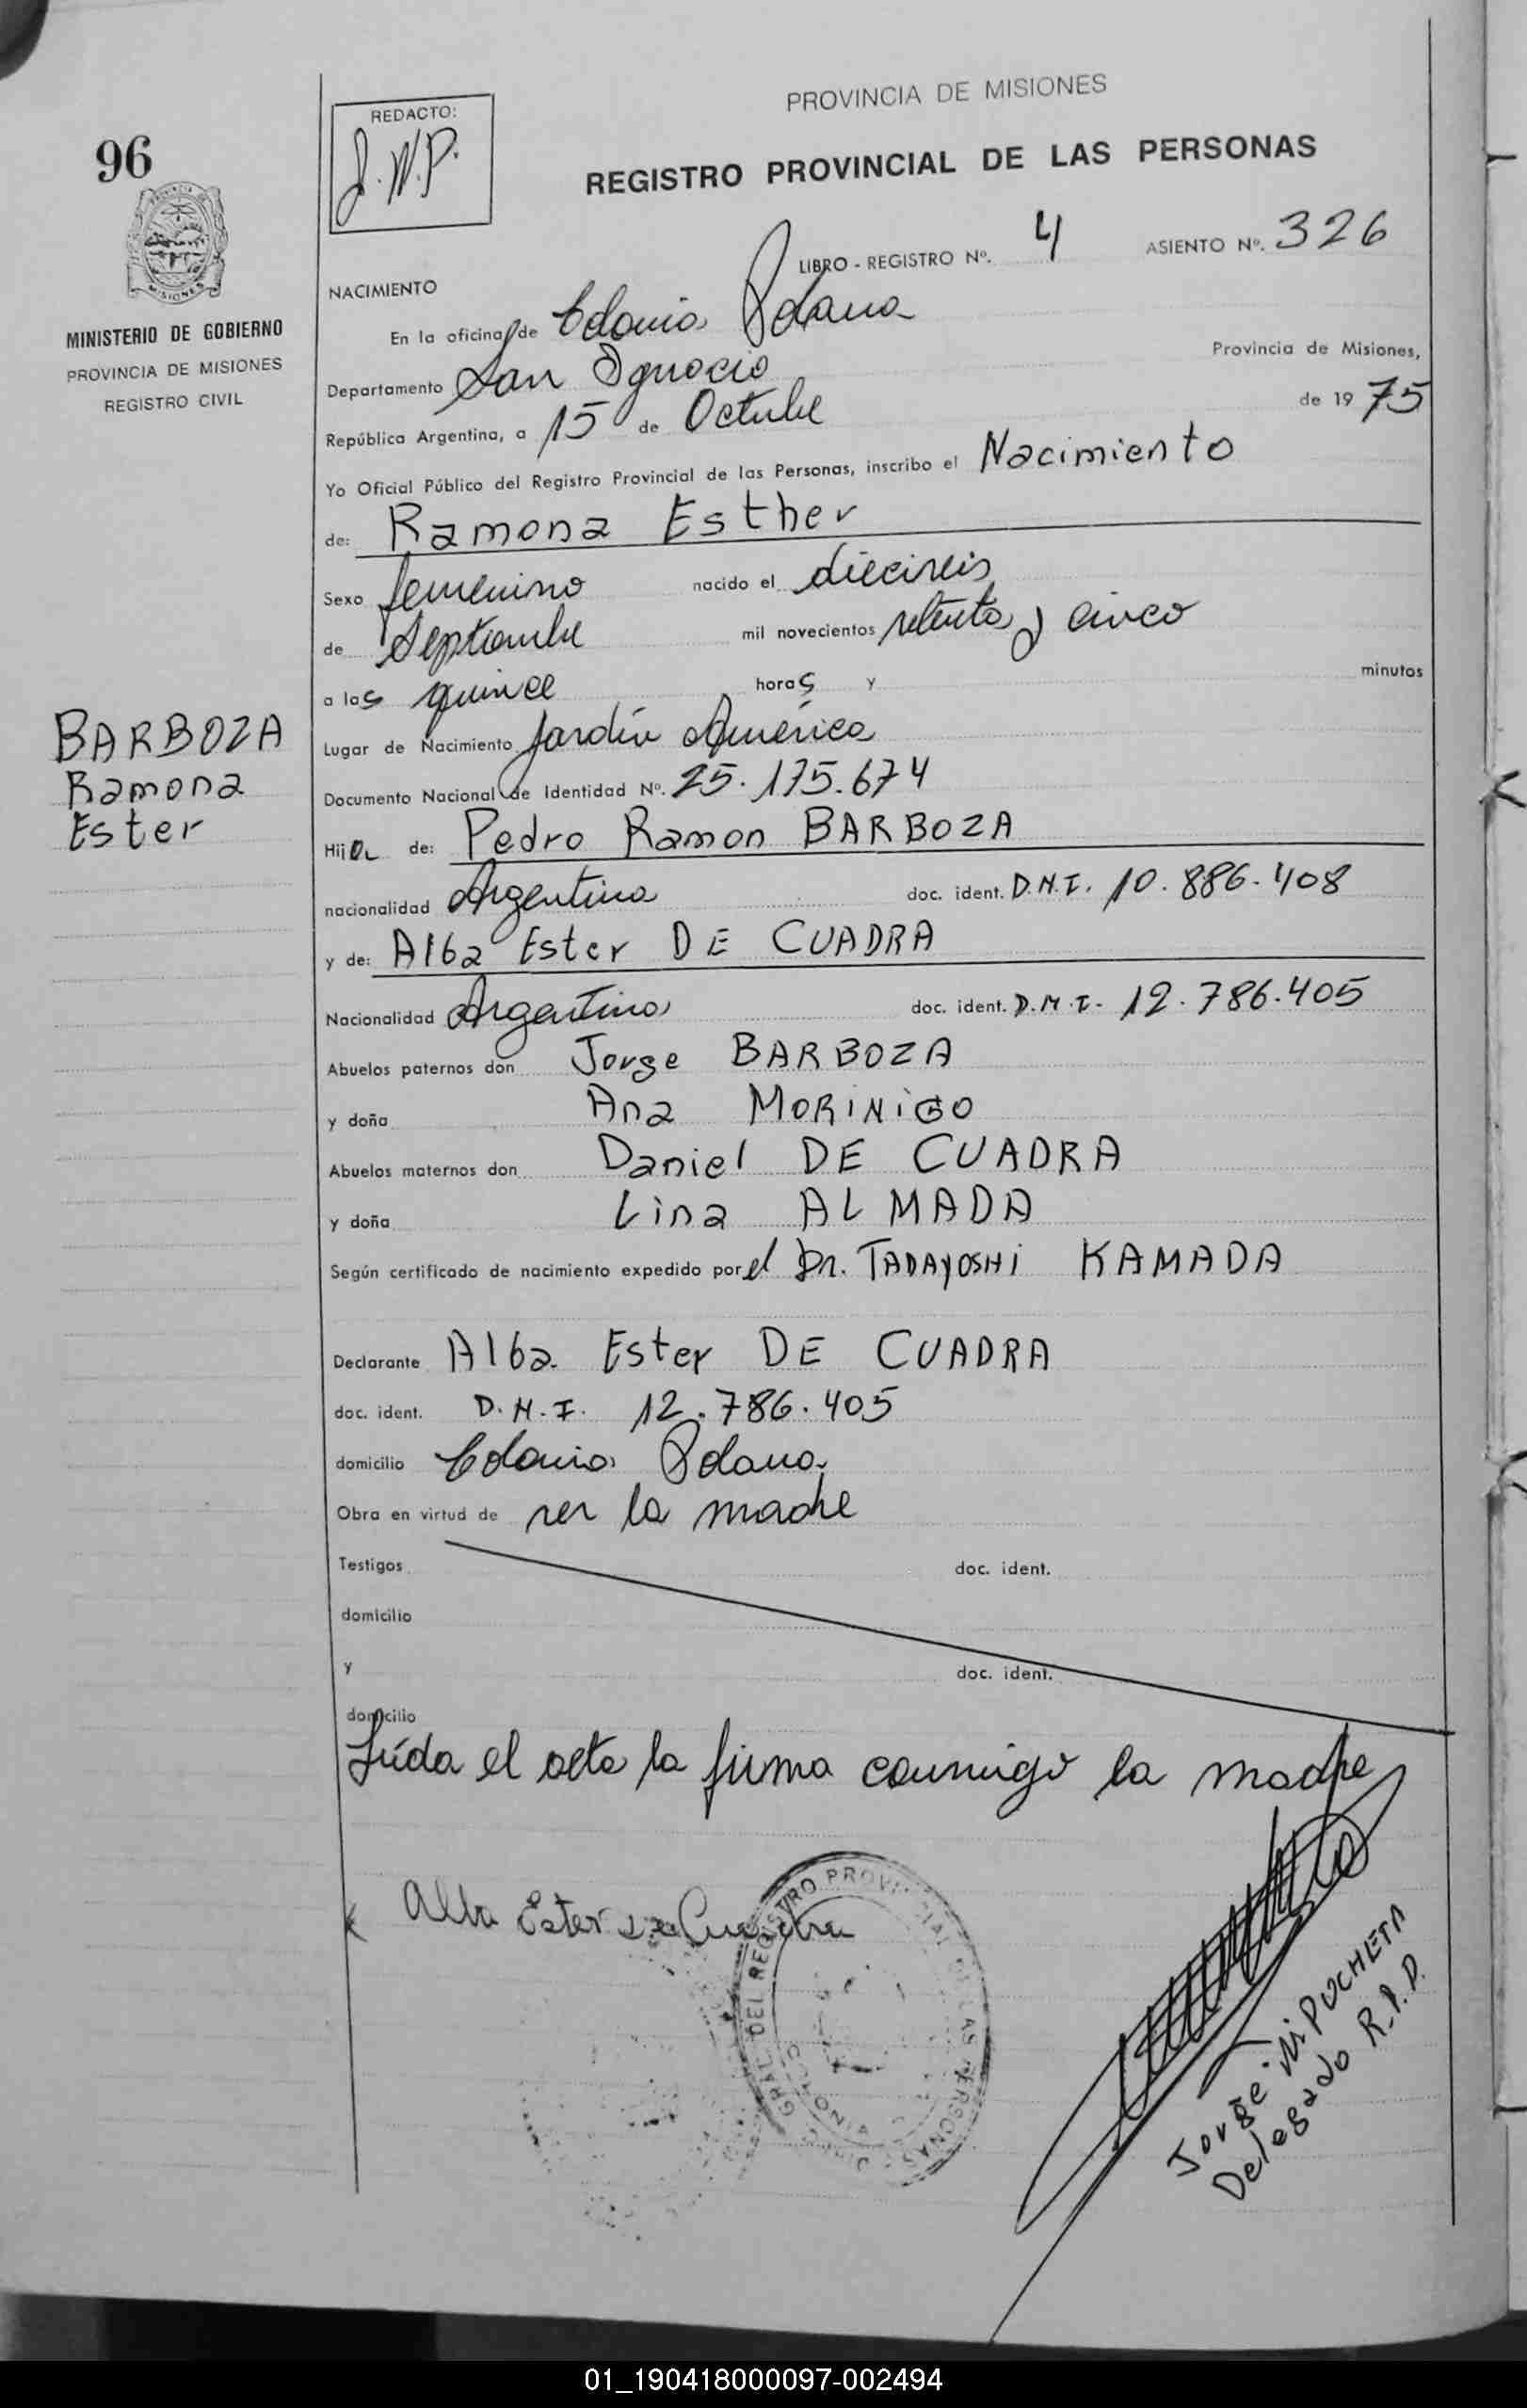 PROVINCIA DE MISIONES
REDACTO:
96
J.N.P.
REGISTRO PROVINCIAL DE LAS PERSONAS
LIBRO - REGISTRO Nº. 4 ASIENTO Nº. 326
NACIMIENTO
MINISTERIO DE GOBIERNO
PROVINCIA DE MISIONES
REGISTRO CIVIL
En la oficina de Colonia Polana
Departamento San Ignacio Provincia de Misiones,
República Argentina, a 15 de Octubre de 1975
Yo Oficial Público del Registro Provincial de las Personas, inscribo el Nacimiento
de: Ramona Esther
Sexo femenino nacido el dieciseis
de Septiembre mil novecientos setenta y cinco
a las quince horas y minutos
BARBOZA
Ramona
Ester
Lugar de Nacimiento Jardín América
Documento Nacional de Identidad Nº. 25.175.674
Hija de: Pedro Ramon BARBOZA
nacionalidad Argentina doc. ident. D.N.I. 10.886.408
y de: Alba Ester DE CUADRA
Nacionalidad Argentina doc. ident. D.N.I. 12.786.405
Abuelos paternos don Jorge BARBOZA
y doña Ana MORINIGO
Abuelos maternos don Daniel DE CUADRA
y doña Lina ALMADA
Según certificado de nacimiento expedido por el Dr. TADAYOSHI KAMADA
Declarante Alba Ester DE CUADRA
doc. ident. D.N.I. 12.786.405
domicilio Colonia Polana
Obra en virtud de ser la madre
Testigos doc. ident.
domicilio
y doc. ident.
domicilio
Leída el acta la firma conmigo la madre
Alba Ester de Cuadra
GRAL. DEL REGISTRO PROVINCIAL DE LAS PERSONAS
Delegado R.P.P.
01_190418000097-002494